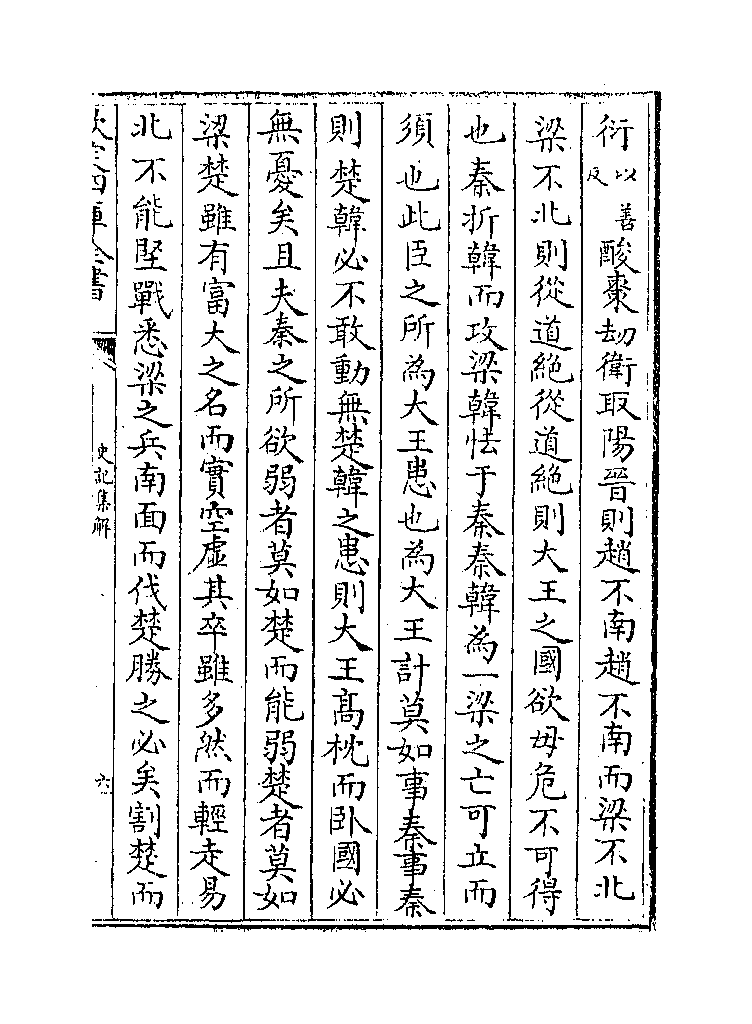 衍以善反酸棗劫衛取陽晉則趙不南趙不南而梁不北
梁不北則從道絶從道絶則大王之國欲毋危不可得
也秦折韓而攻梁韓怯于秦秦韓為一梁之亡可立而
須也此臣之所為大王患也為大王計莫如事秦事秦
則楚韓必不敢動無楚韓之患則大王髙枕而卧國必
無憂矣且夫秦之所欲弱者莫如楚而能弱楚者莫如
梁楚雖有富大之名而實空虛其卒雖多然而輕走易
北不能堅戰悉梁之兵南面而伐楚勝之必矣割楚而
欽定四庫全書
史記集解
六